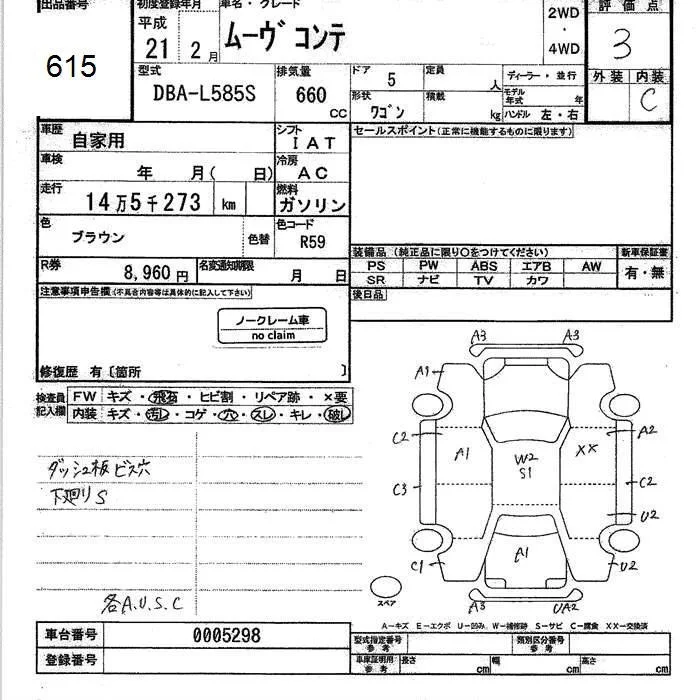 出品番号
615
初度登録年月
平成
21 2 月
車名・グレード
ムーヴ コンテ
2WD
・
4WD
評価点
3
外装 内装
C
型式
DBA-L585S
排気量
660
CC
ドア 5
形状 ワゴン
定員 人
積載 kg
ディーラー・並行
モデル年式 年
ハンドル 左・右
車歴 自家用
シフト IAT
セールスポイント(正常に機能するものに限ります)
車検 年 月( 日)
冷房 AC
走行 14万5千273 km
燃料 ガソリン
色 ブラウン 色替
色コード R59
装備品 (純正品に限り○をつけてください)
新車保証書
PS PW ABS エアB AW
SR ナビ TV カワ
有・無
R券 8,960円
名変通知期限 月 日
後日品
注意事項申告欄(不具合内容等は具体的に記入して下さい)
ノークレーム車
no claim
修復歴 有〔箇所 〕
検査員記入欄
FW キズ・飛石・ヒビ割・リペア跡・×要
内装 キズ・汚レ・コゲ・穴・スレ・キレ・破レ
ダッシュ板ビス穴
下廻りS
各A.U.S.C
A3 A3
A1
C2 A1 W2 S1 XX A2
C3 C2
U2
A1
C1 U2
A3 UA2
スペア
A―キズ E―エクボ U―凹み W―補修跡 S―サビ C―腐食 XX―交換済
車台番号 0005298
登録番号
型式指定番号 参考
類別区分番号 参考
車庫証明用 参考
長さ cm 幅 cm 高さ cm